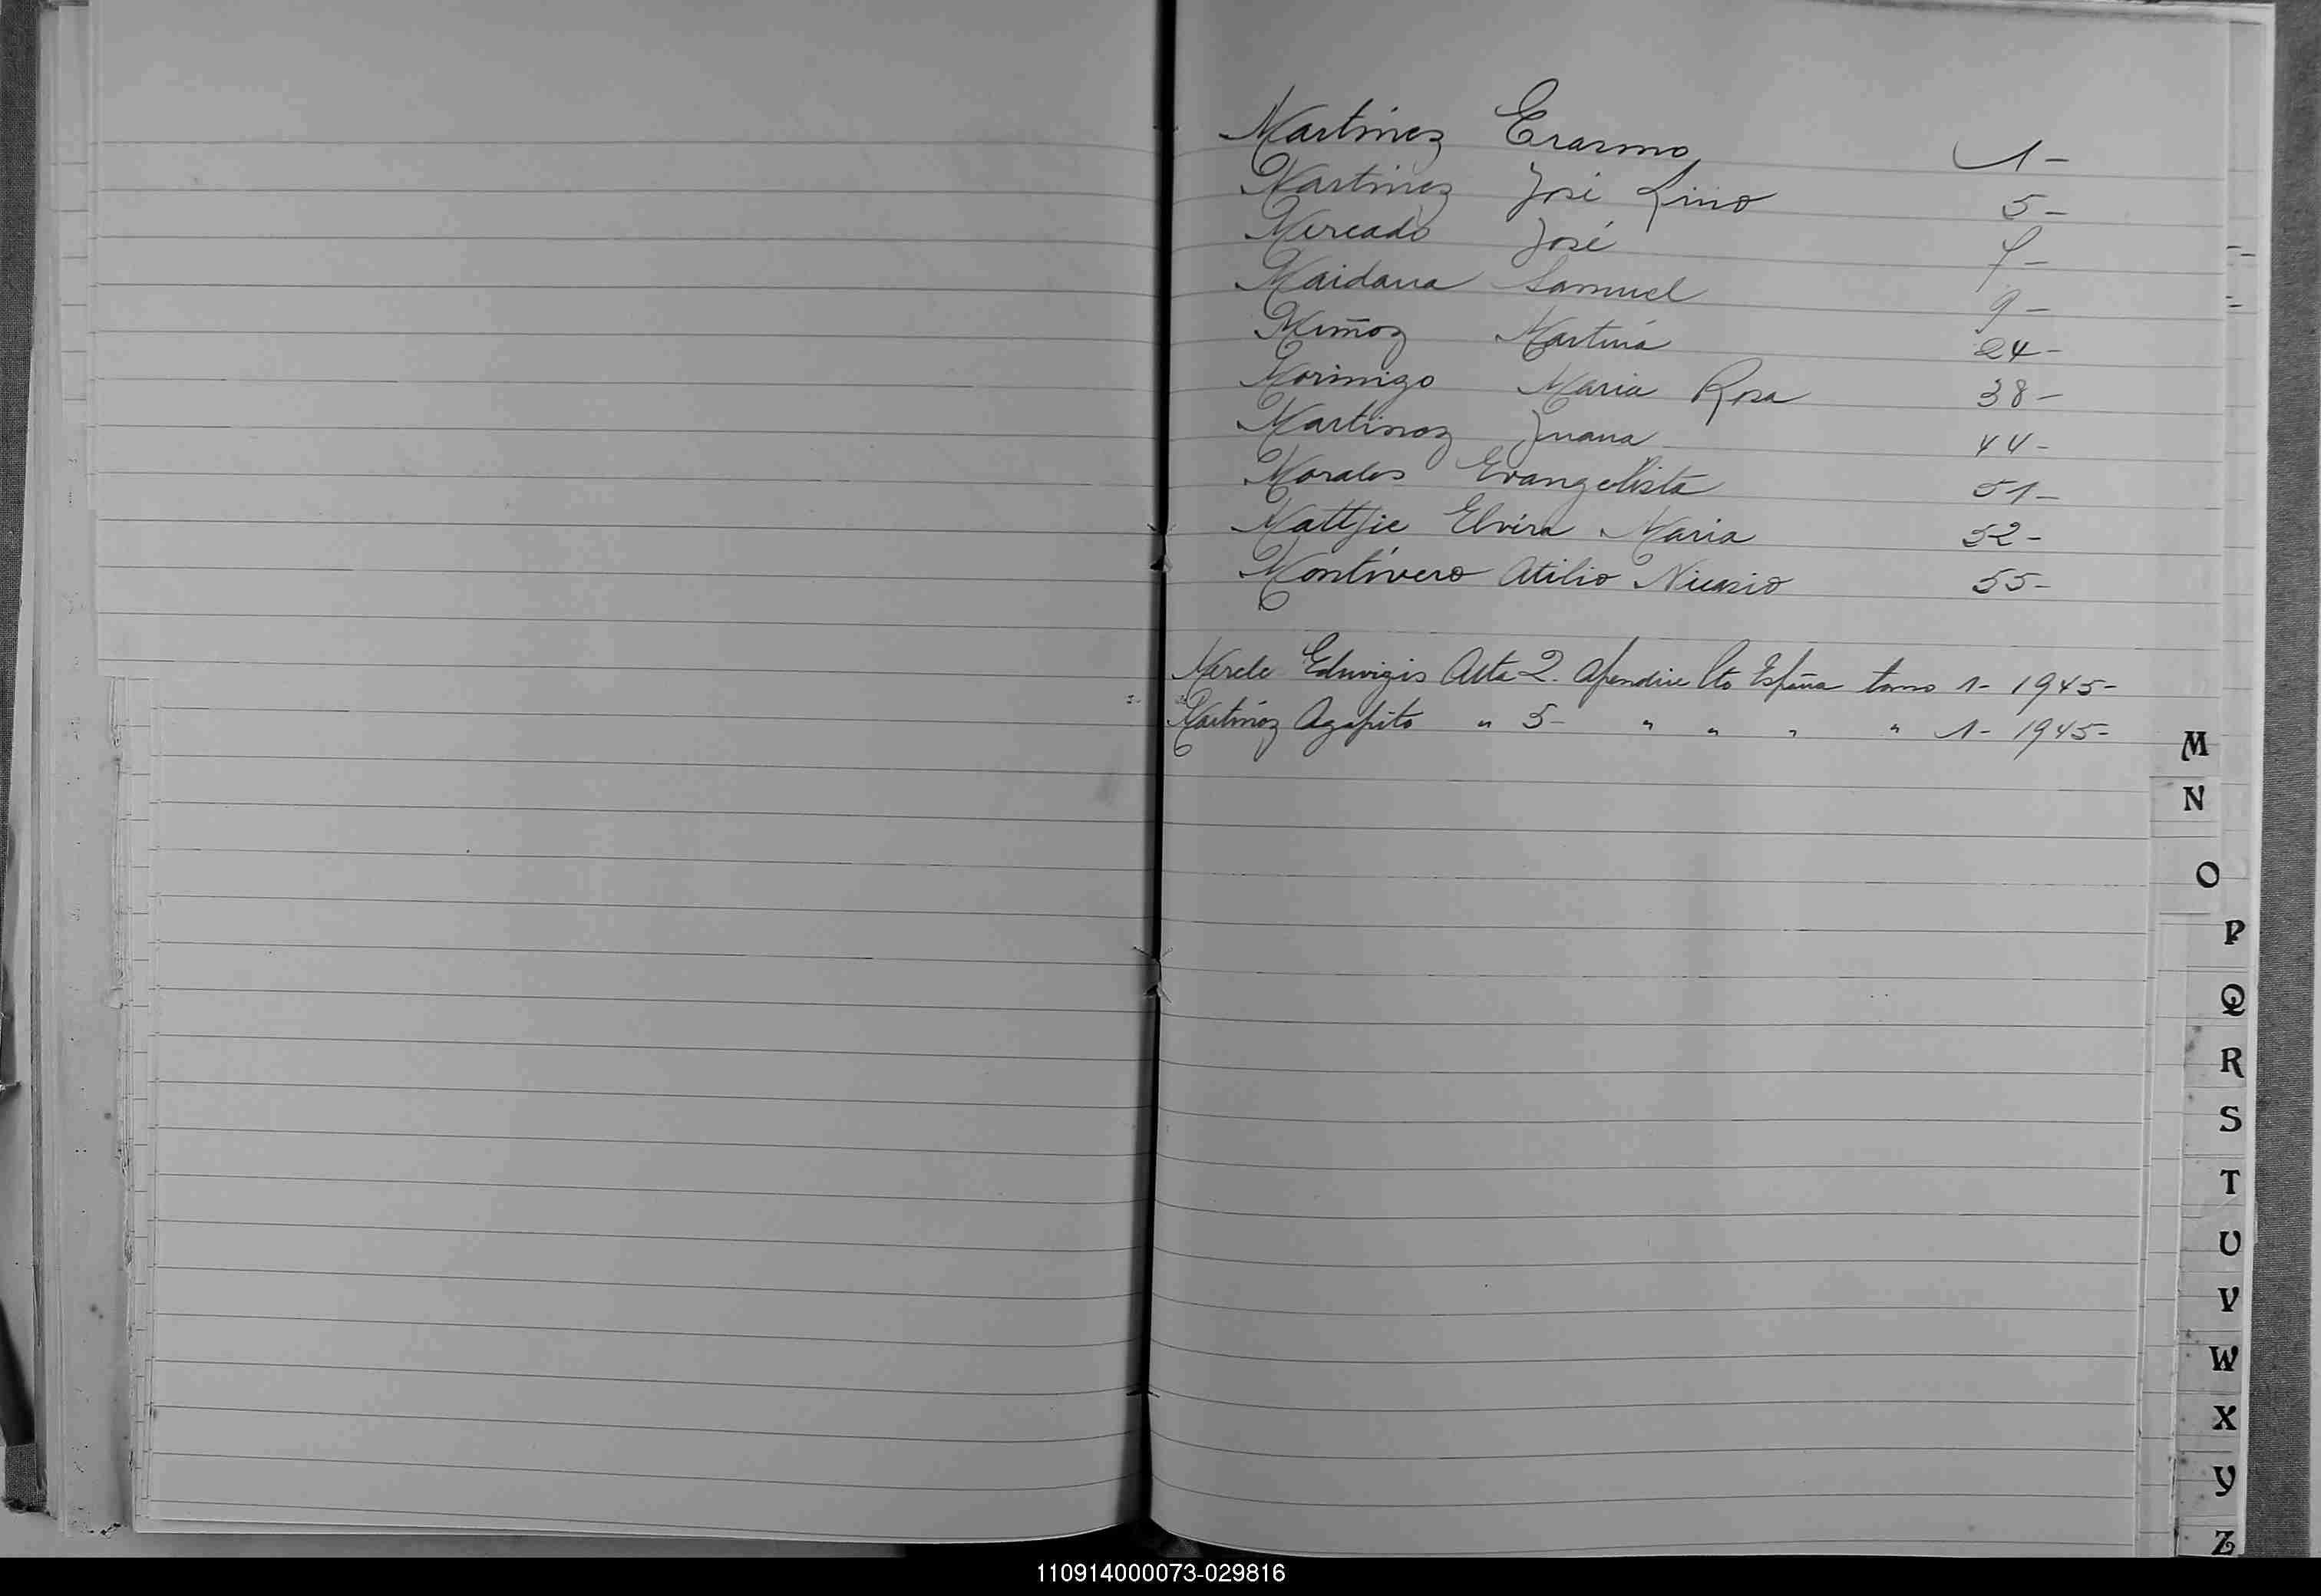 Martinez Erasmo 1-
Martinez José Lino 5-
Mercado José 7-
Maidana Samuel 9-
Muñoz Martina 24-
Morinigo Maria Rosa 38-
Martinez Juana 44-
Morales Evangelista 51-
Mattjie Elvira Maria 52-
Montivero Atilio Nicasio 55-
Merele Eduvigis Acta 2. Apendice Cto España tomo 1- 1945-
Martinez Agapito " 5- " " " " 1- 1945-
M
N
O
P
Q
R
S
T
U
V
W
X
Y
Z
110914000073-029816